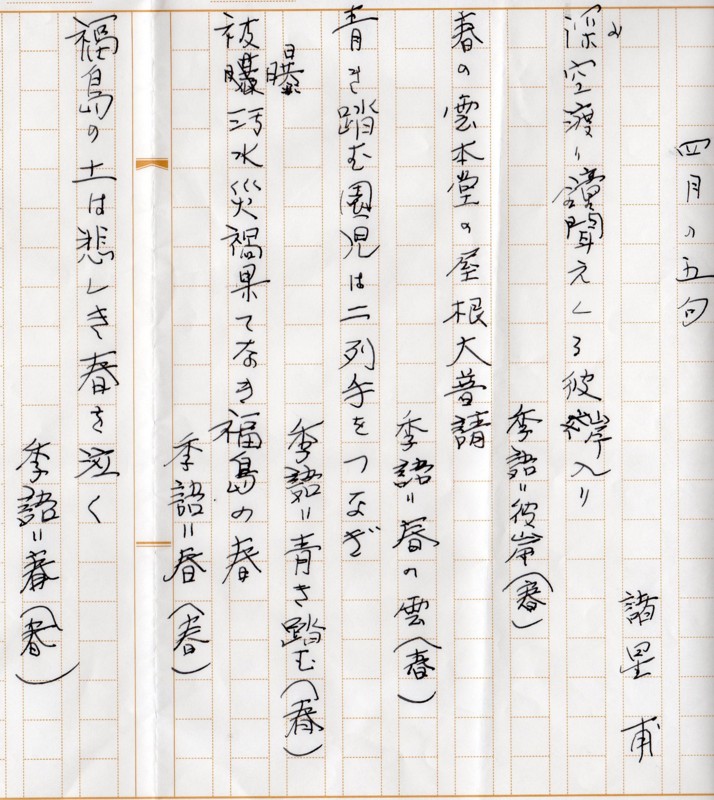 四月の五句
諸星甫
深空渡り鐘聞えくる彼岸入り
季語=彼岸(春)
春の雲本堂の屋根大普請
季語=春の雲(春)
青き踏む園児は二列手をつなぎ
季語=青き踏む(春)
被曝汚水災禍果てなき福島の春
季語=春(春)
福島の土は悲しき春を泣く
季語=春(春)